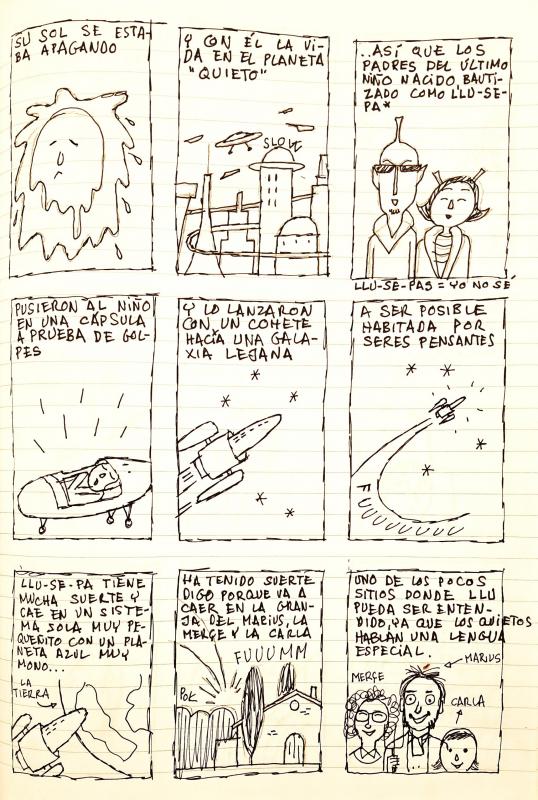 SU SOL SE ESTA-
BA APAGANDO
Y CON ÉL LA VI-
DA EN EL PLANETA
"QUIETO"
SLOW
...ASÍ QUE LOS
PADRES DEL ÚLTIMO
NIÑO NACIDO, BAUTI-
ZADO COMO LLU-SE-
PA*
LLU-SE-PAS = YO NO SÉ
PUSIERON AL NIÑO
EN UNA CÁPSULA
A PRUEBA DE GOL-
PES
Y LO LANZARON
CON UN COHETE
HACIA UNA GALA-
XIA LEJANA
A SER POSIBLE
HABITADA POR
SERES PENSANTES
FUUUUUUUU
LLU-SE-PA TIENE
MUCHA SUERTE Y
CAE EN UN SISTE-
MA SOLA MUY PE-
QUEÑITO CON UN PLA-
NETA AZUL MUY
MONO...
LA
TIERRA
HA TENIDO SUERTE
DIGO PORQUE VA A
CAER EN LA GRAN-
JA DEL MARIUS, LA
MERCE Y LA CARLA
FUUUMM
POK
UNO DE LOS POCOS
SITIOS DONDE LLU
PUEDA SER ENTEN-
DIDO, YA QUE LOS QUIETOS
HABLAN UNA LENGUA
ESPECIAL.
MARIUS
MERCE
CARLA